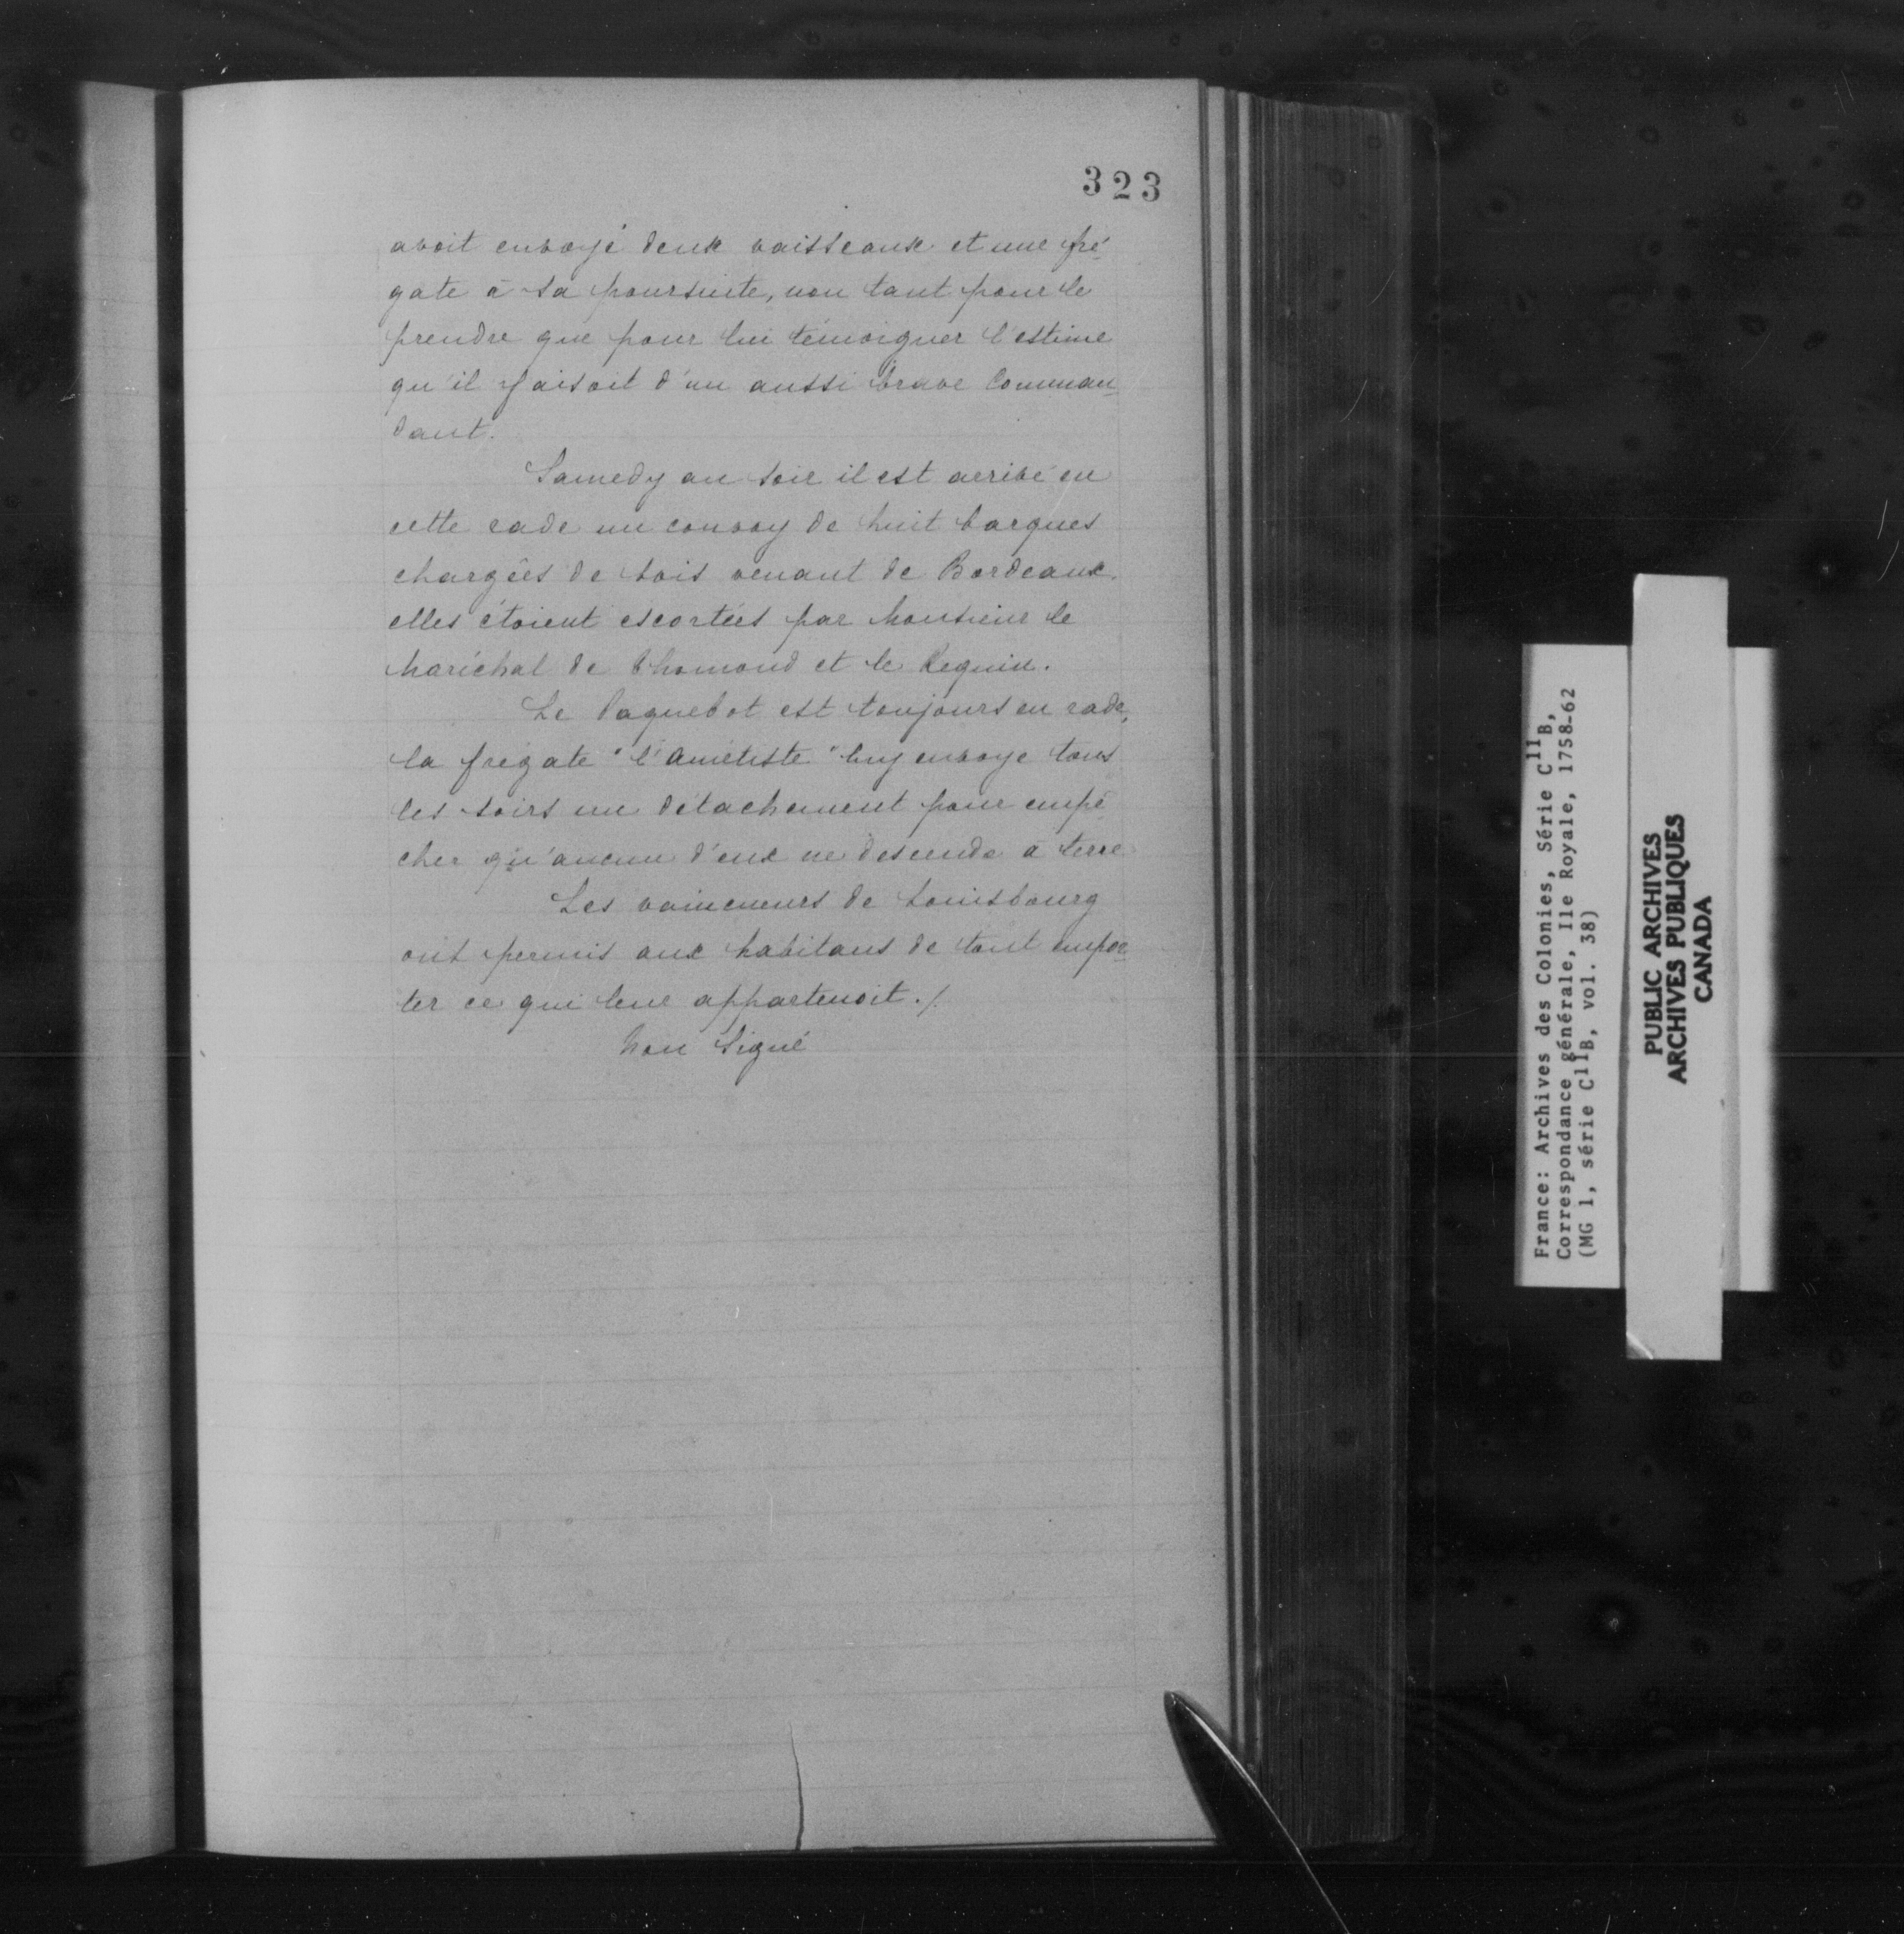 323
avoit envoyé deux vaisseaux et une fré-
gate à sa poursuite, non tant pour le
prendre que pour lui témoigner l'estime
qu'il faisoit d'un aussi brave Comman-
dant.
Samedy au soir il est arrivé en
cette rade un convoy de huit barques
chargées de bois venant de Bordeaux.
elles étoient escortées par Monsieur le
Maréchal de Thomond et le Requin.
Le Paquebot est toujours en rade,
la frégate "l'Améliste" luy envoye tous
les soirs un détachement pour empê-
cher qu'aucun d'eux ne descende à terre
Les vaincueurs de Louisbourg
ont permis aux habitans de tout empor-
ter ce qui leur appartenoit./.
Non Signé
France: Archives des Colonies, Série C11B,
Correspondance générale, Ile Royale, 1758-62
(MG 1, série C11B, vol. 38)
PUBLIC ARCHIVES
ARCHIVES PUBLIQUES
CANADA